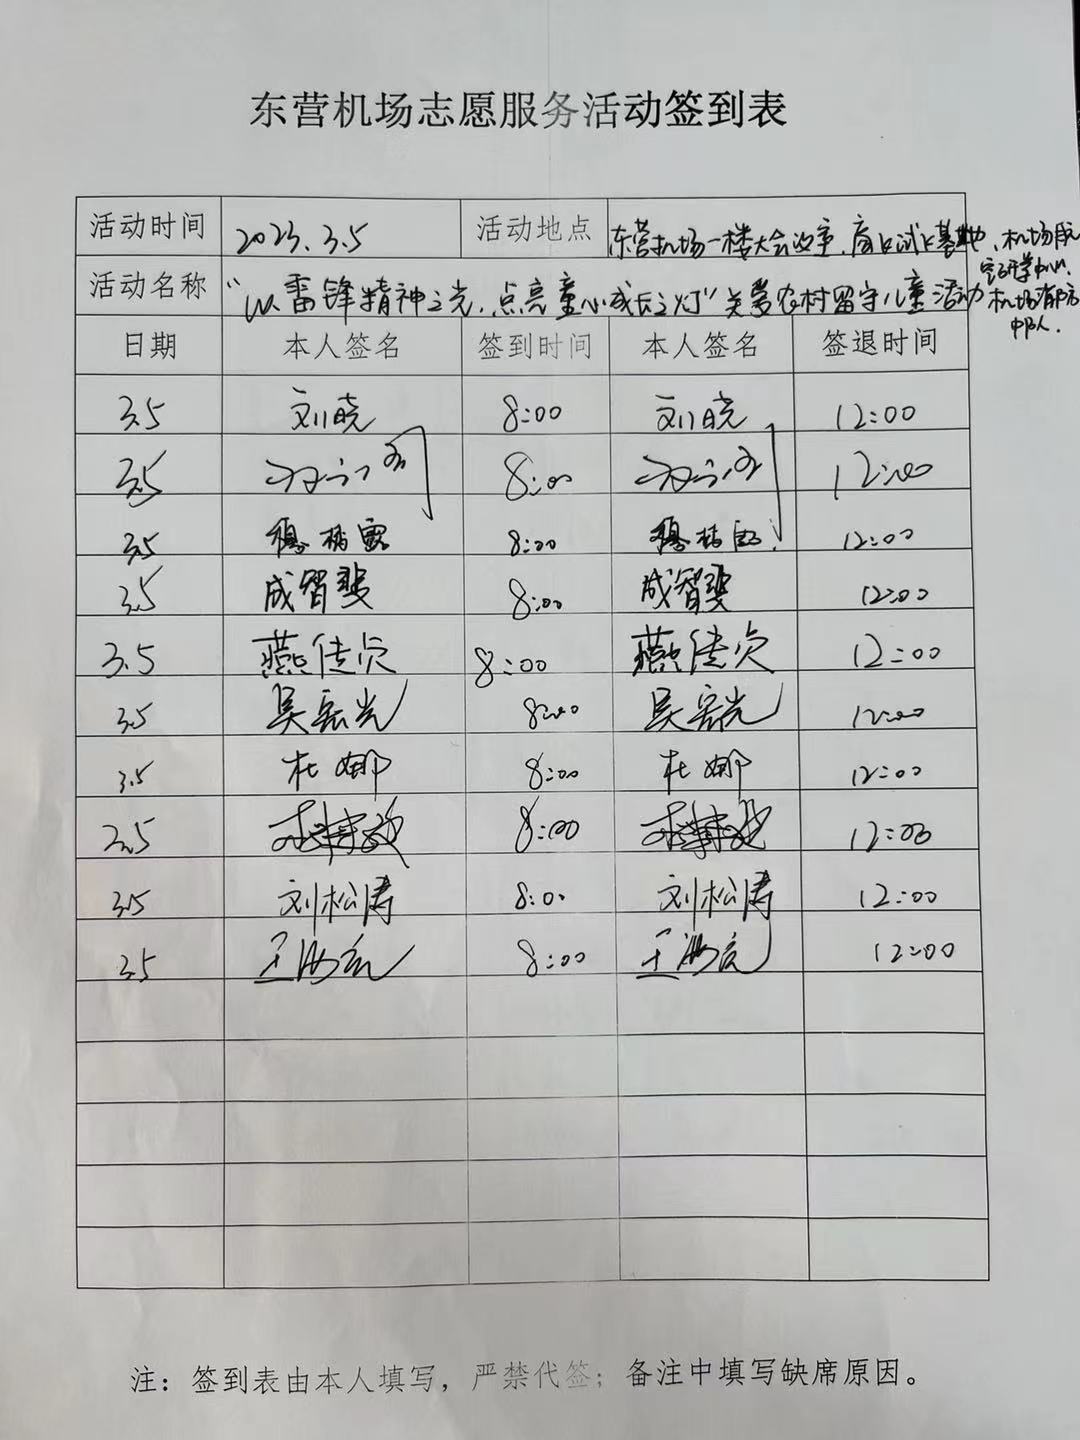 东营机场志愿服务活动签到表
活动时间 2023.3.5 活动地点 东营机场一楼大会议室、
活动名称 “以雷锋精神之光，点亮童心成长之灯”关爱农村留守儿童活动
日期 本人签名 签到时间 本人签名 签退时间
3.5 刘晓 8:00 刘晓 12:00
3.5 8:00 12:00
3.5 8:00 12:00
3.5 成智斐 8:00 成智斐 12:00
3.5 燕佳贞 8:00 燕佳贞 12:00
3.5 8:00 12:00
3.5 杜娜 8:00 杜娜 12:00
3.5 8:00 12:00
3.5 刘松涛 8:00 刘松涛 12:00
3.5 王海亮 8:00 王海亮 12:00
注：签到表由本人填写，严禁代签；备注中填写缺席原因。